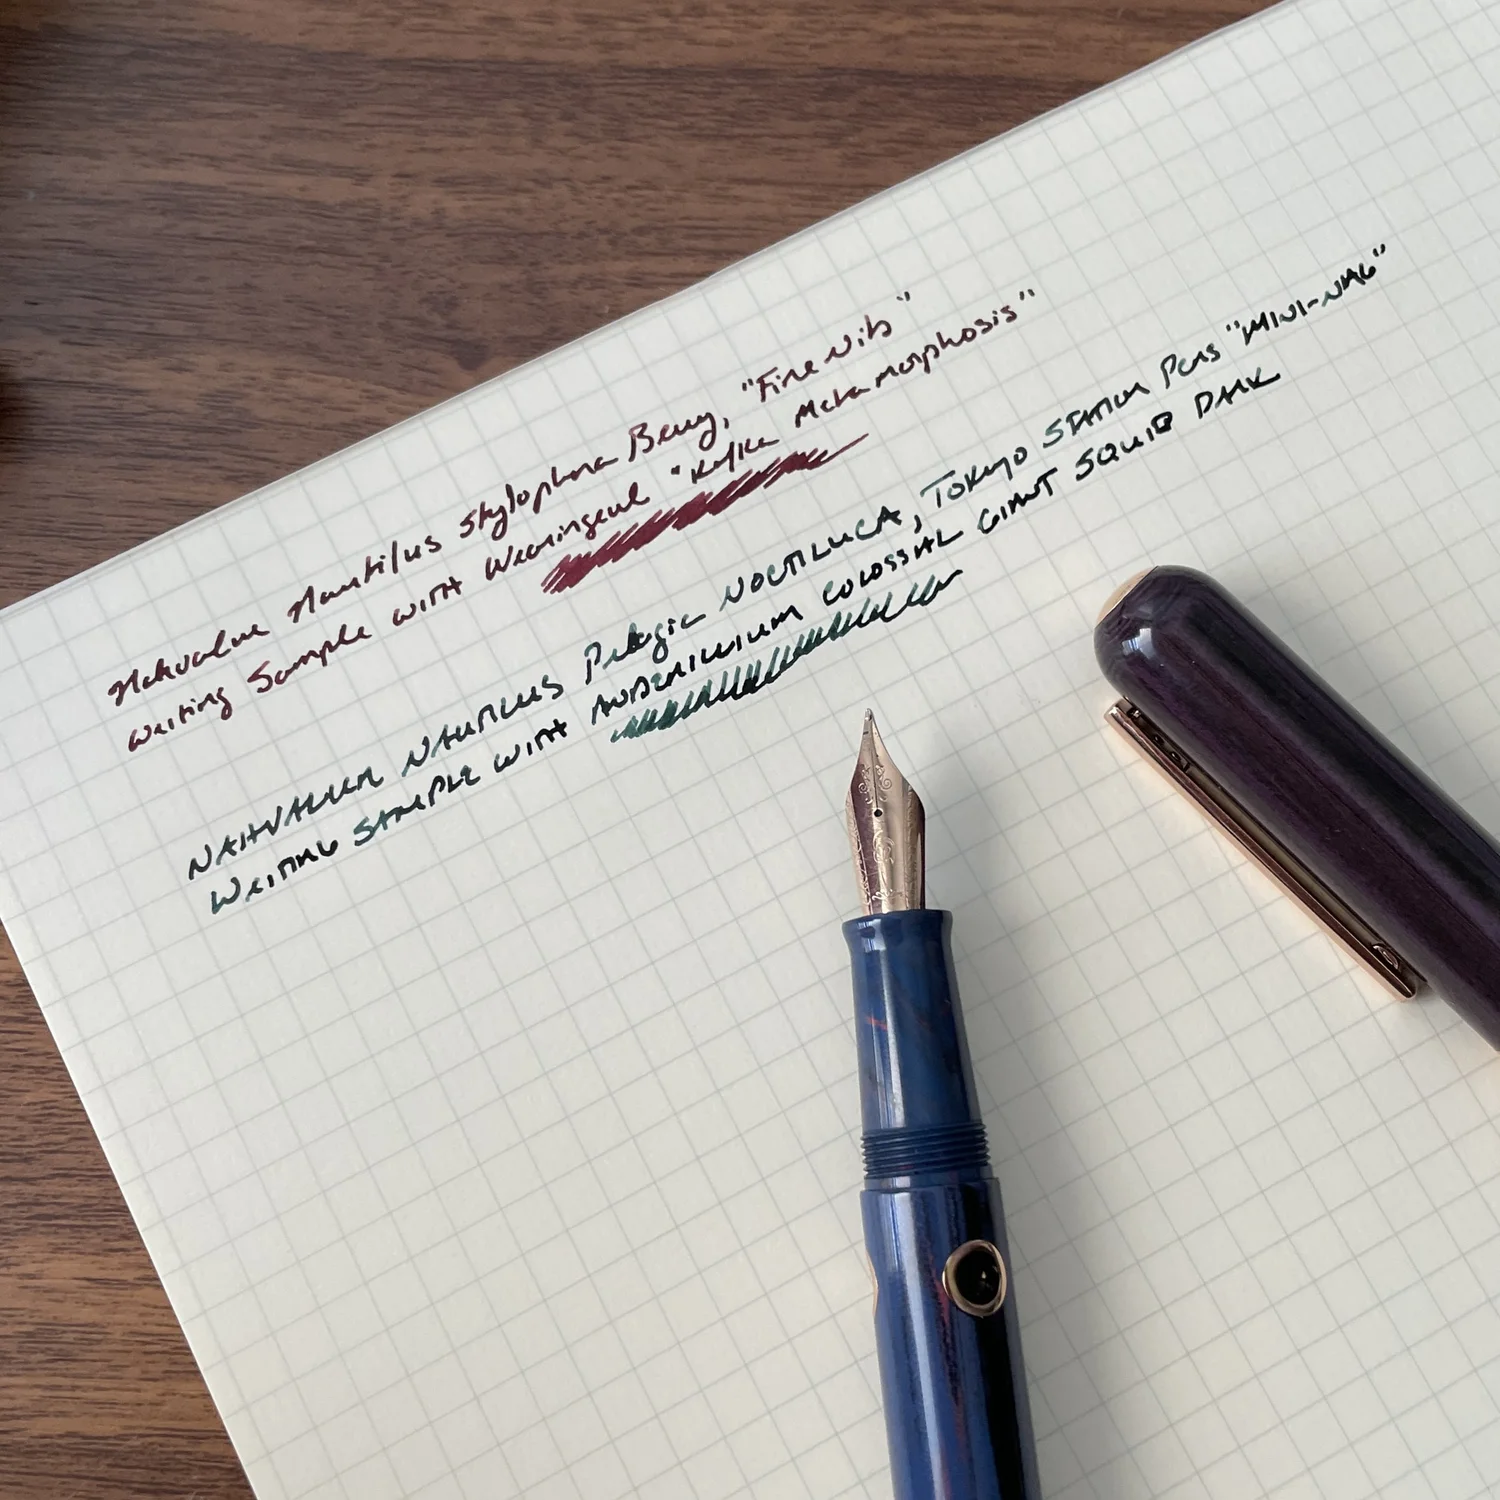 Nahvalur Nautilus Stylophora Berry, "Fine Nib"
Writing Sample with Wearingeul "Kafka Metamorphosis"
NAHVALUR NAUTILUS Pelagic NOCTILUCA, TOKYO STATION Pens "MINI-NAG"
WRITING SAMPLE WITH ANDERILLIUM COLOSSAL GIANT SQUID DARK